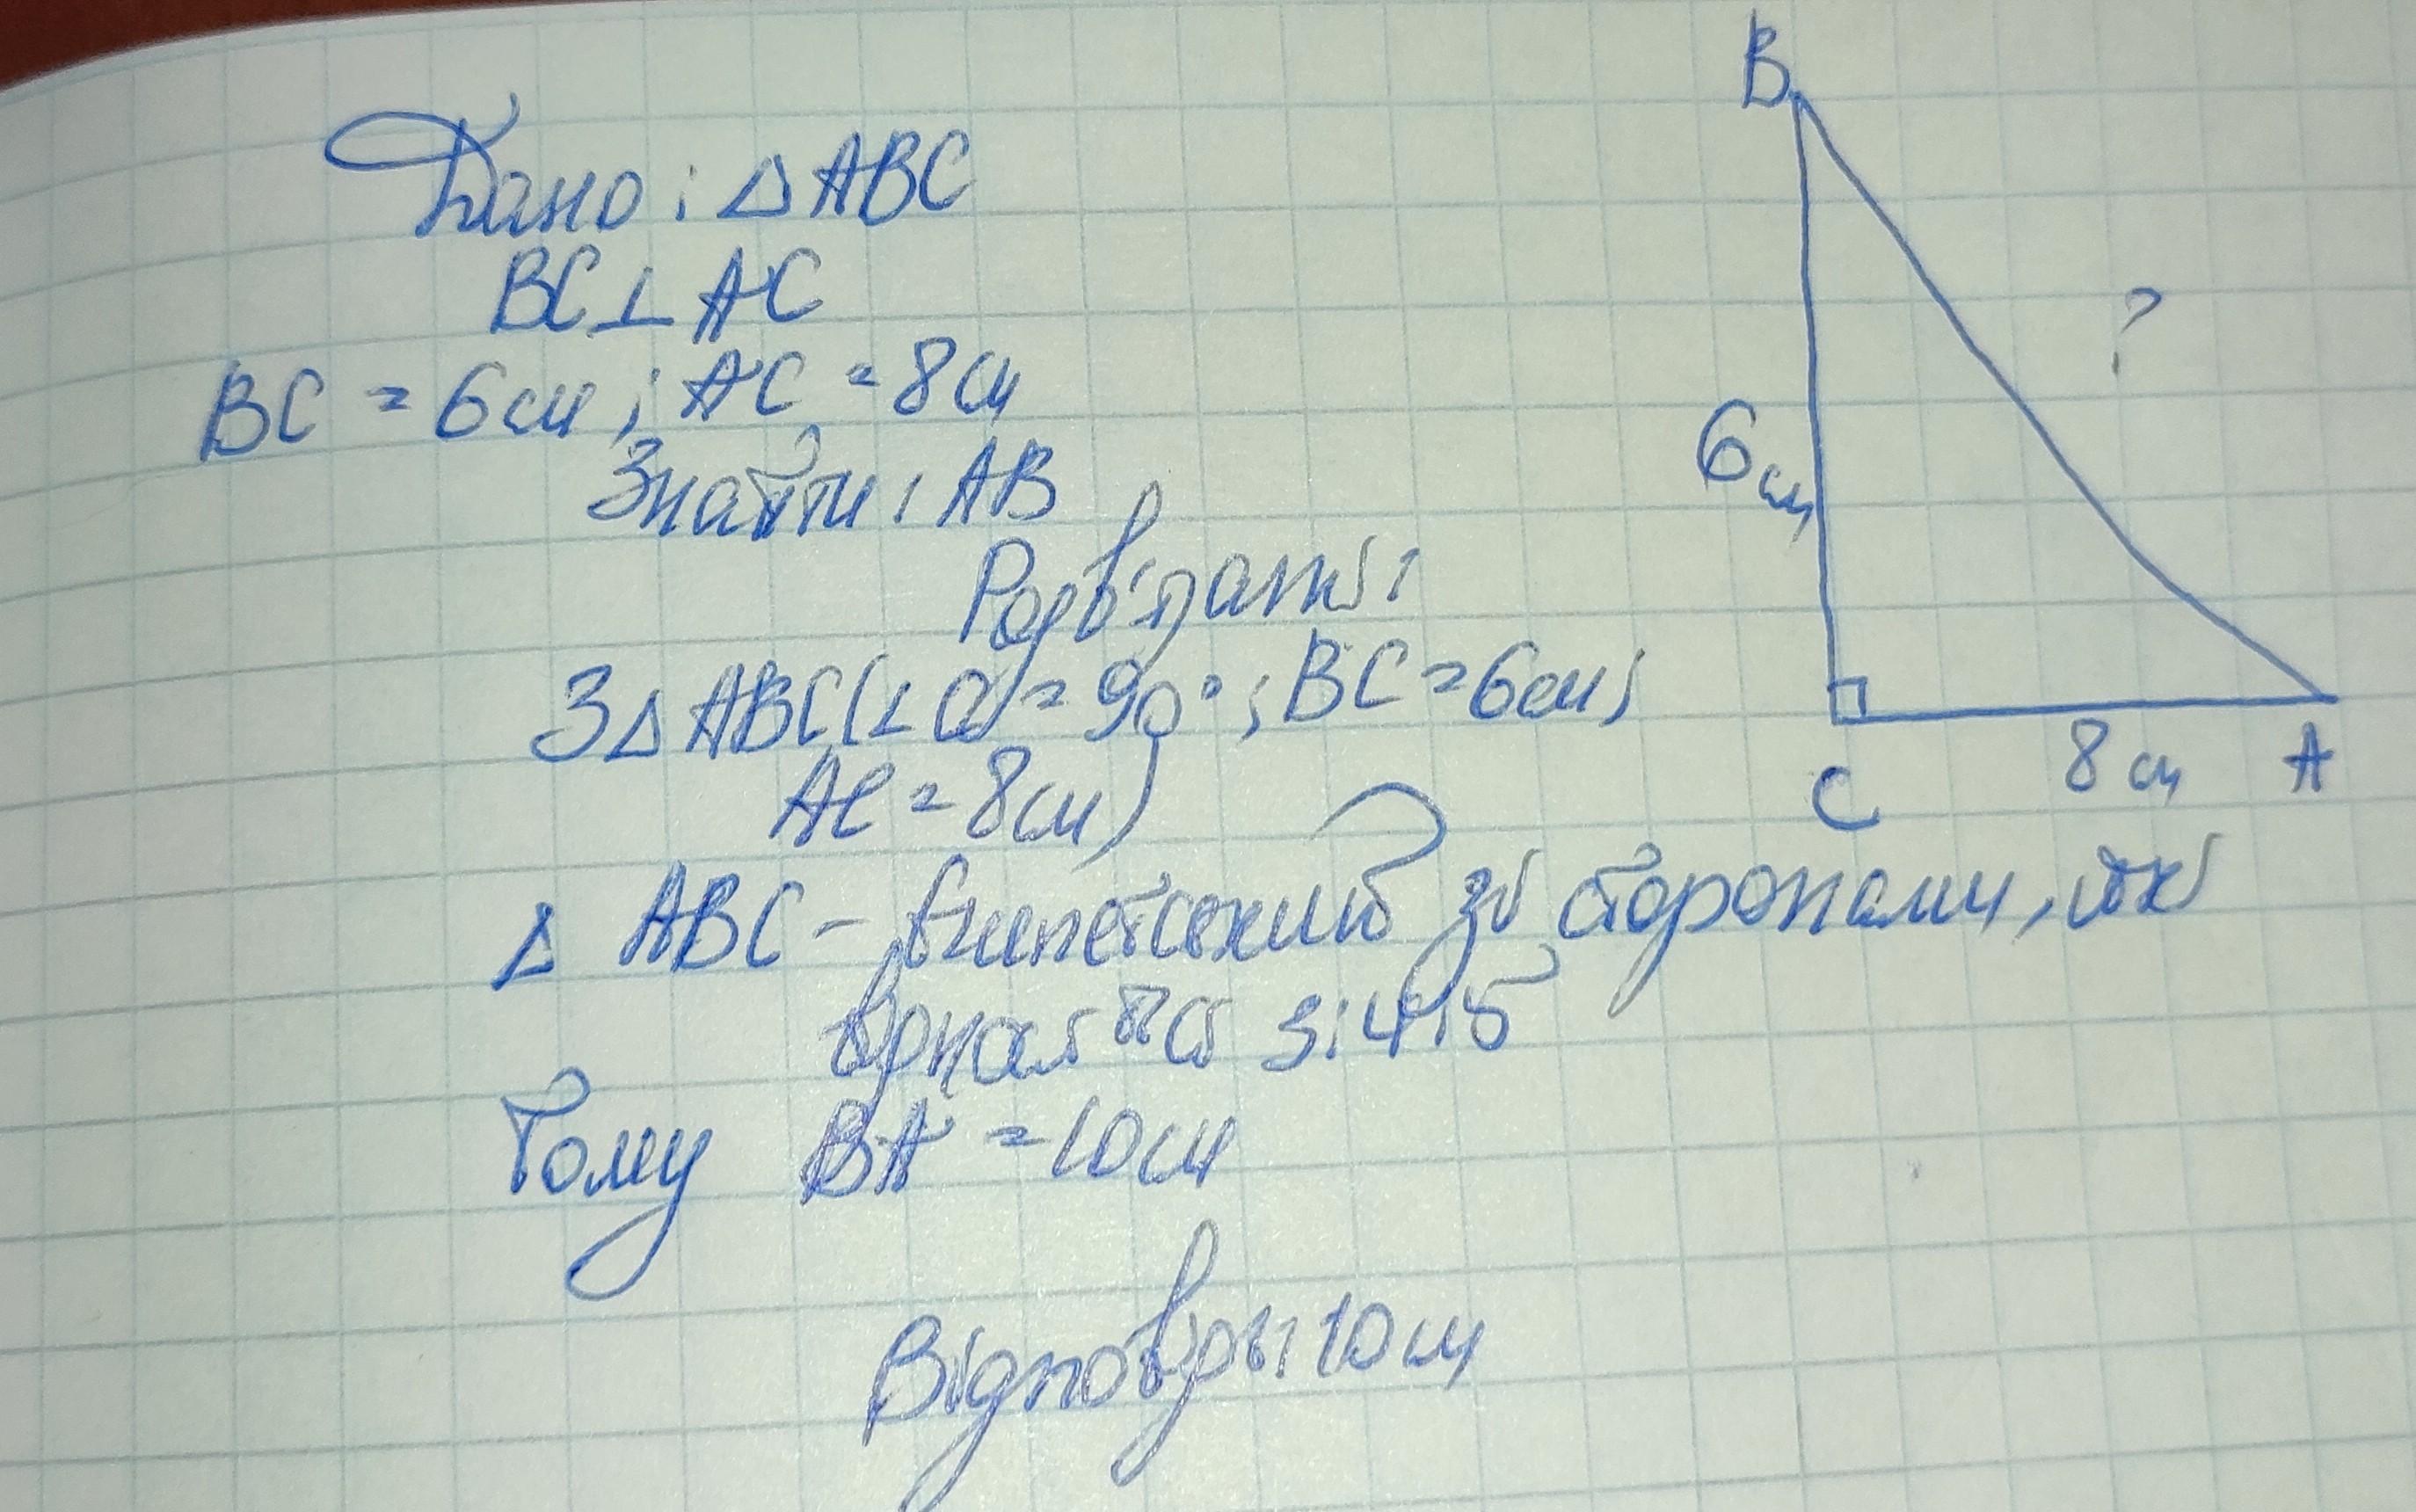 Дано: △ABC
BC⊥AC
BC = 6см; AC = 8см
Знайти: AB
Розв'язання:
З △ABC(∠C = 90°; BC = 6см;
AC = 8см)
△ ABC – Єгипетський зі сторонами, які
3:4:5
Тому BA = 10см
Відповідь: 10см
B
?
6см
C
8см
A